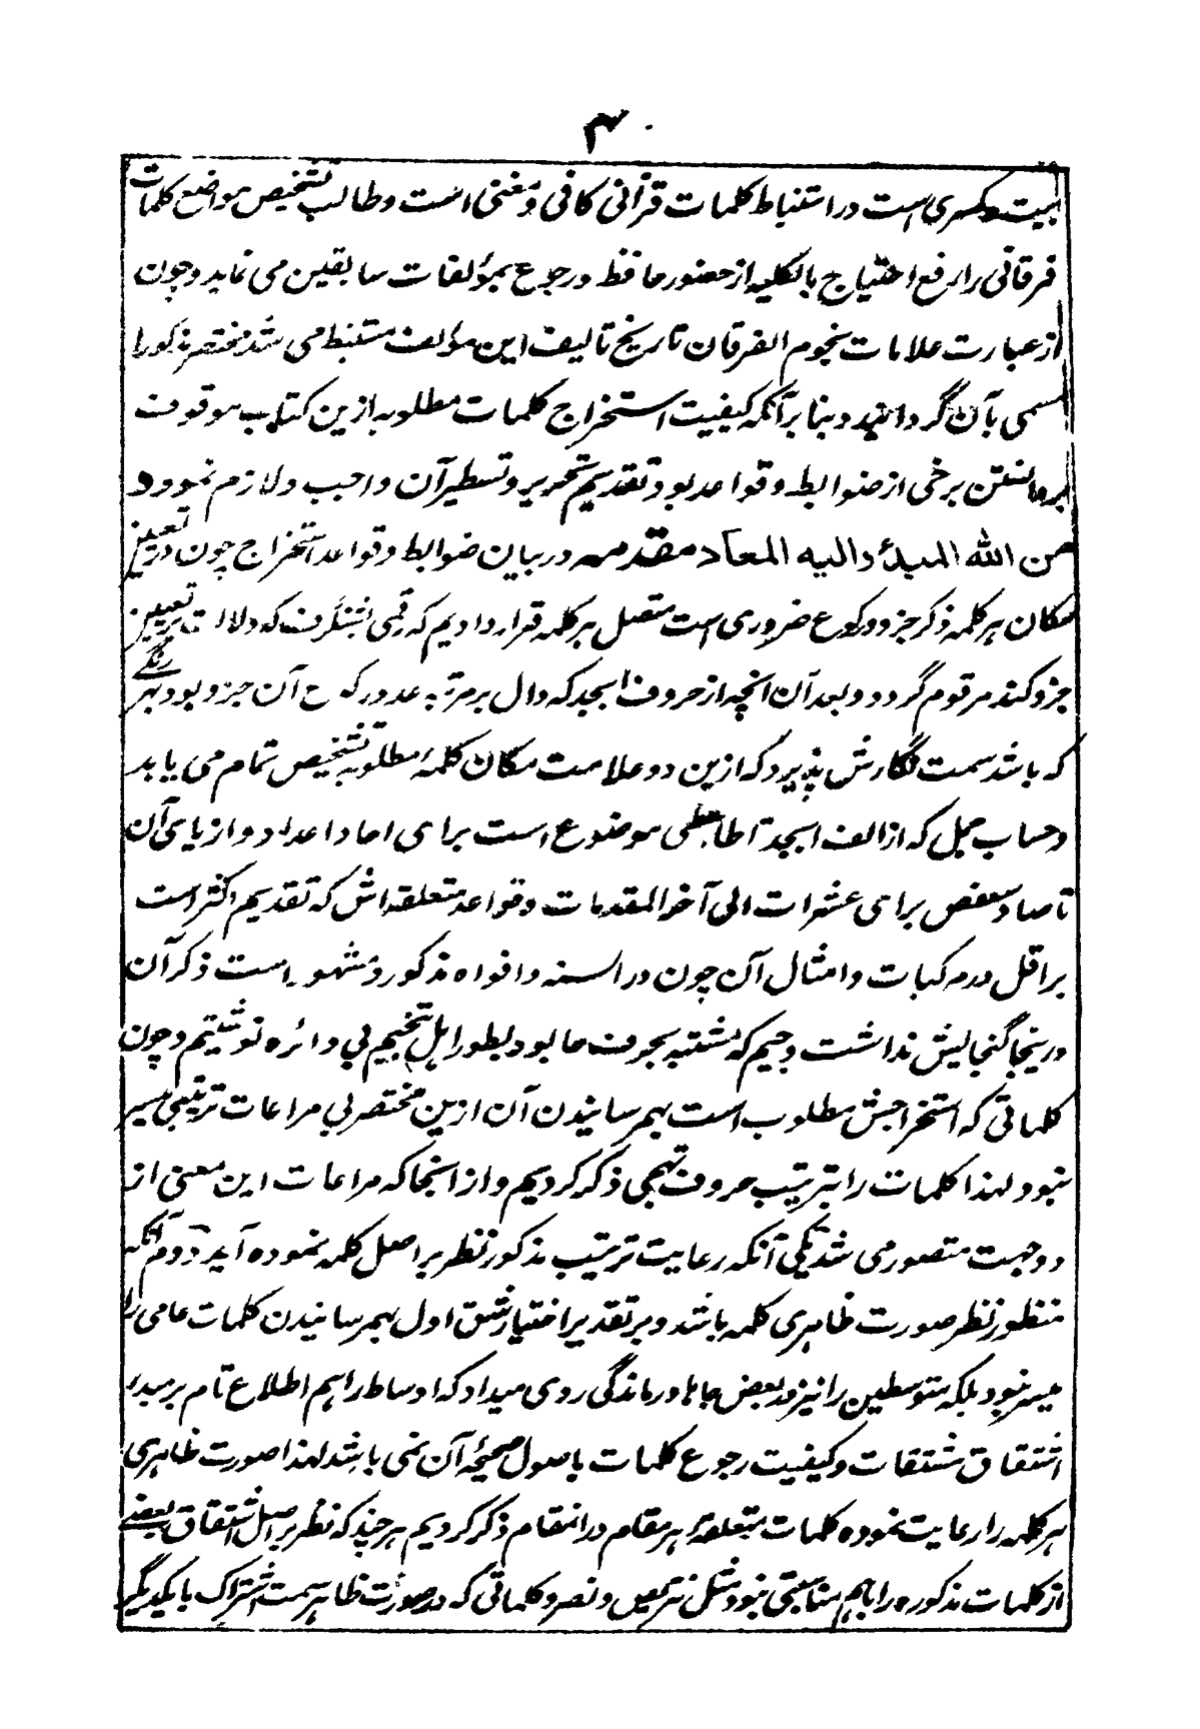 ۳
است در استنباط کلمات قرآنی کافی و مغنی است و طالب تشخیص مواضع کلمات
فرقانی را رفع احتیاج بالکلیه از حضور حافظ و رجوع بمؤلفات سابقین می نماید و چون
از عبارت علامات نجوم الفرقان تاریخ تالیف این مؤلف مستنبط می شد مختصر مذکور را
مسمی بآن گردانید و بنا بر آنکه کیفیت استخراج کلمات مطلوبه ازین کتاب موقوف
بر دانستن برخی از ضوابط و قواعد بود تقدیم تحریر و تسطیر آن واجب و لازم نمود و
من الله المبدأ والیه المعاد مقدمه در بیان ضوابط و قواعد استخراج چون در تعیین
مکان هر کلمه ذکر جزو و رکوع ضروری است متصل هر کلمه قرار دادیم که رقمی بشنگرف که دلالت بر تعیین
جزو کند مرقوم گردد و بعد آن آنچه از حروف ابجد که دال بر مرتبه عدد رکوع آن جزو بود بهر رنگے
که باشد سمت نگارش پذیرد که ازین دو علامت مکان کلمۀ مطلوبه تشخیص تمام می یابد
و حساب جمل که از الف ابجد تا طا حطی موضوع است برای احاد اعداد و از یای آن
تا صاد سعفص برای عشرات الی آخر المقدمات و قواعد متعلقه اش که تقدیم اکثر است
بر اقل در مرکبات و امثال آن چون در السنه و افواه مذکور و مشهور است ذکر آن
درینجا گنجایش نداشت و جیم که مشتبه بحرف حا بود بطور اهل تنجیم بی دائره نوشتیم و چون
کلماتی که استخراجش مطلوب است بهم رسانیدن آن ازین مختصر بی مراعات ترتیبی میسر
نبود لهذا کلمات را بترتیب حروف تهجی ذکر کردیم و از آنجا که مراعات این معنی از
دو جهت متصور می شد یکی آنکه رعایت ترتیب مذکور نظر بر اصل کلمه نموده آید دوم آنکه
منظور نظر صورت ظاهری کلمه باشد و بر تقدیر اختیار شق اول بهم رسانیدن کلمات عامی را
میسر نبود بلکه متوسطین را نیز در بعض جاها درماندگی روی میداد که اوساط را هم اطلاع تام بر مبدء
اشتقاق مشتقات و کیفیت رجوع کلمات باصول صحیحۀ آن نمی باشد لهذا صورت ظاهری
هر کلمه را رعایت نموده کلمات متعلقۀ هر مقام در انمقام ذکر کردیم هر چند که نظر بر اصل اشتقاق بعضے
از کلمات مذکوره را باهم مناسبتی نبود مثل نتربص و نصر و کلماتی که در صورت ظاهر سمت اشتراک با یکدیگر